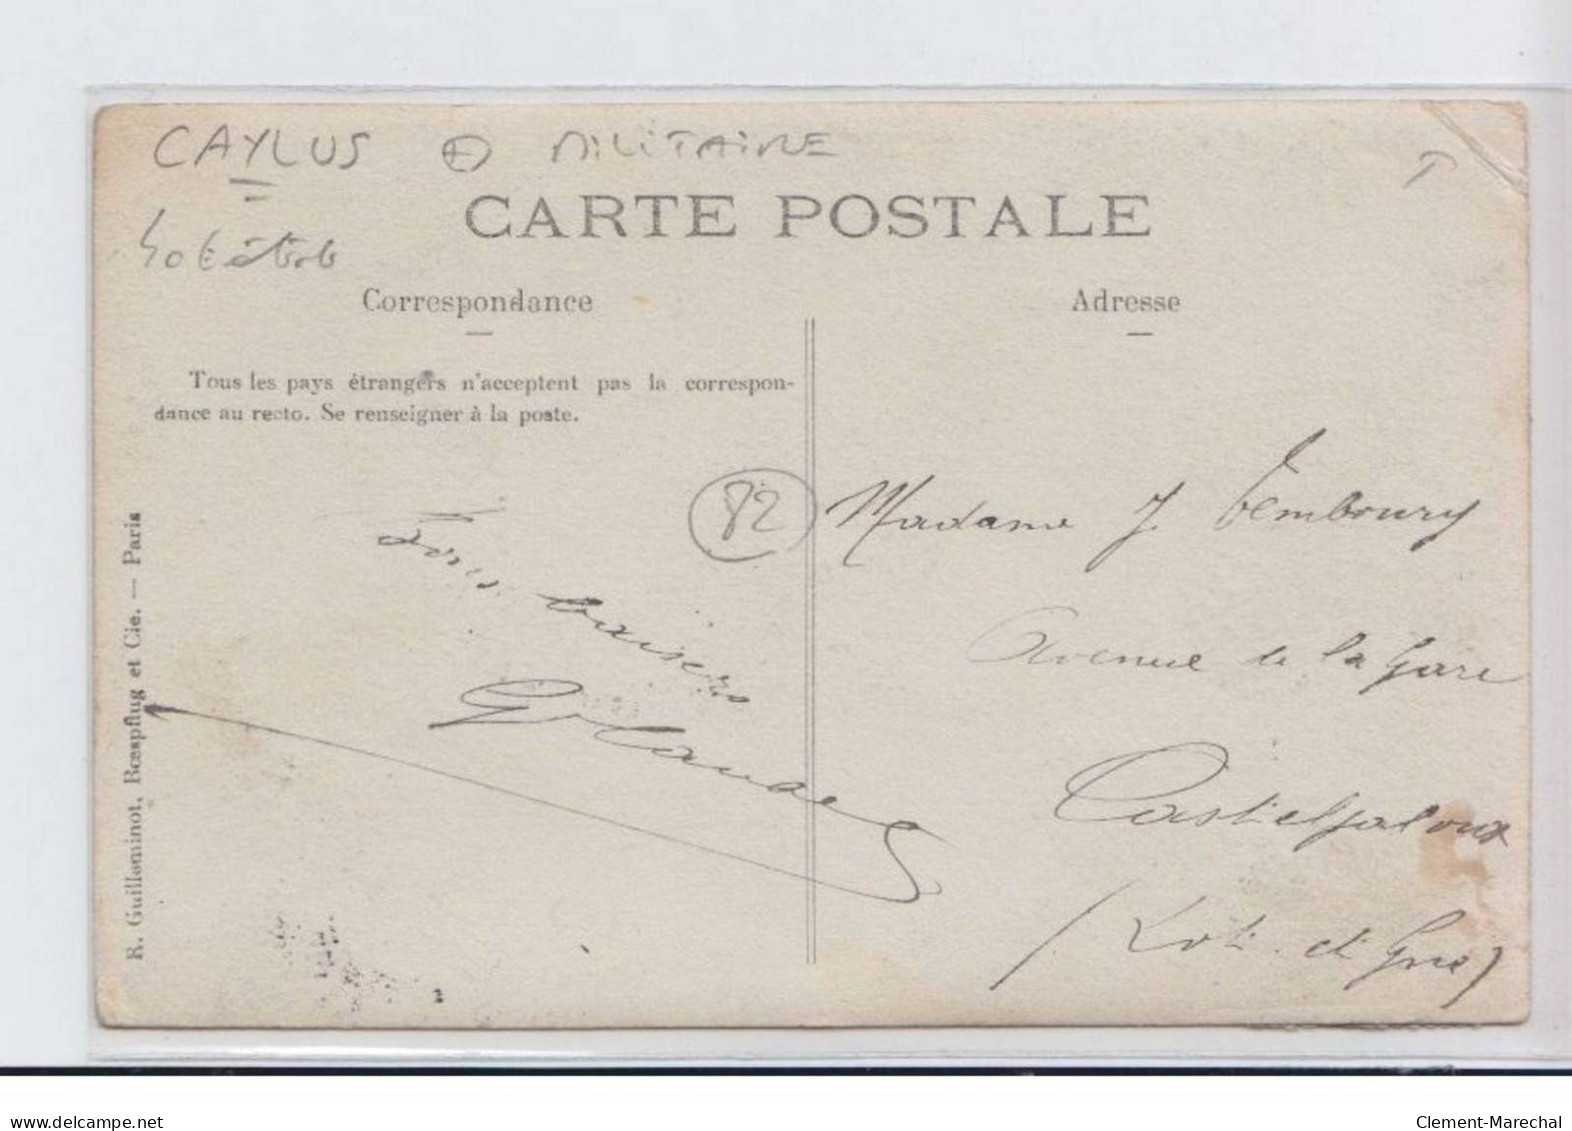 CAYLUS + MILITAIRE
T
CARTE POSTALE
Correspondance
Adresse
Tous les pays étrangers n'acceptent pas la correspon-
dance au recto. Se renseigner à la poste.
82
R. Guilleminot, Bœspflug et Cie. — Paris
baisers
Madame J. Temboury
Avenue de la Gare
Casteljaloux
(Lot et Gne)
www.delcampe.net
Clement-Marechal